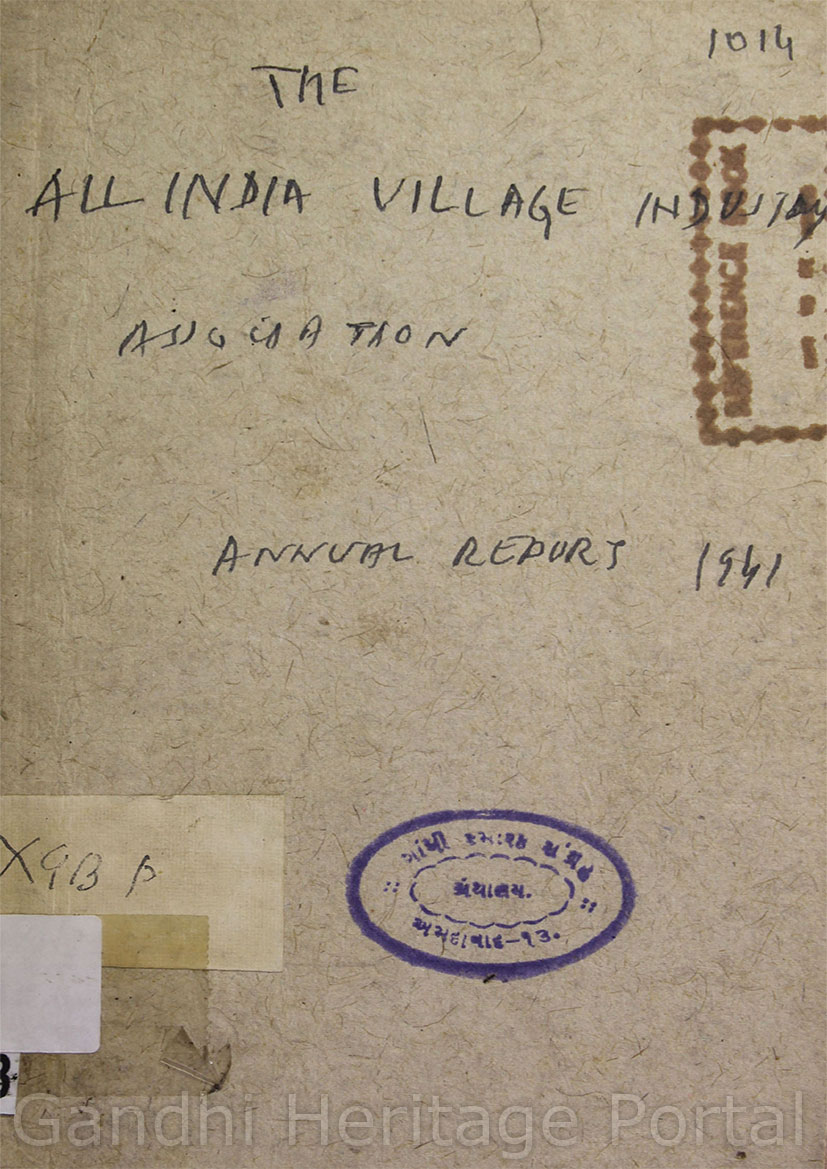 1014
THE
ALL INDIA VILLAGE INDUSTRY
ASSOCIATION
ANNUAL REPORT 1941
REFERENCE BOOK
X9B
ગાંધી સ્મારક સંગ્રહ
ગ્રંથાલય.
અમદાવાદ-૧૩.
Gandhi Heritage Portal